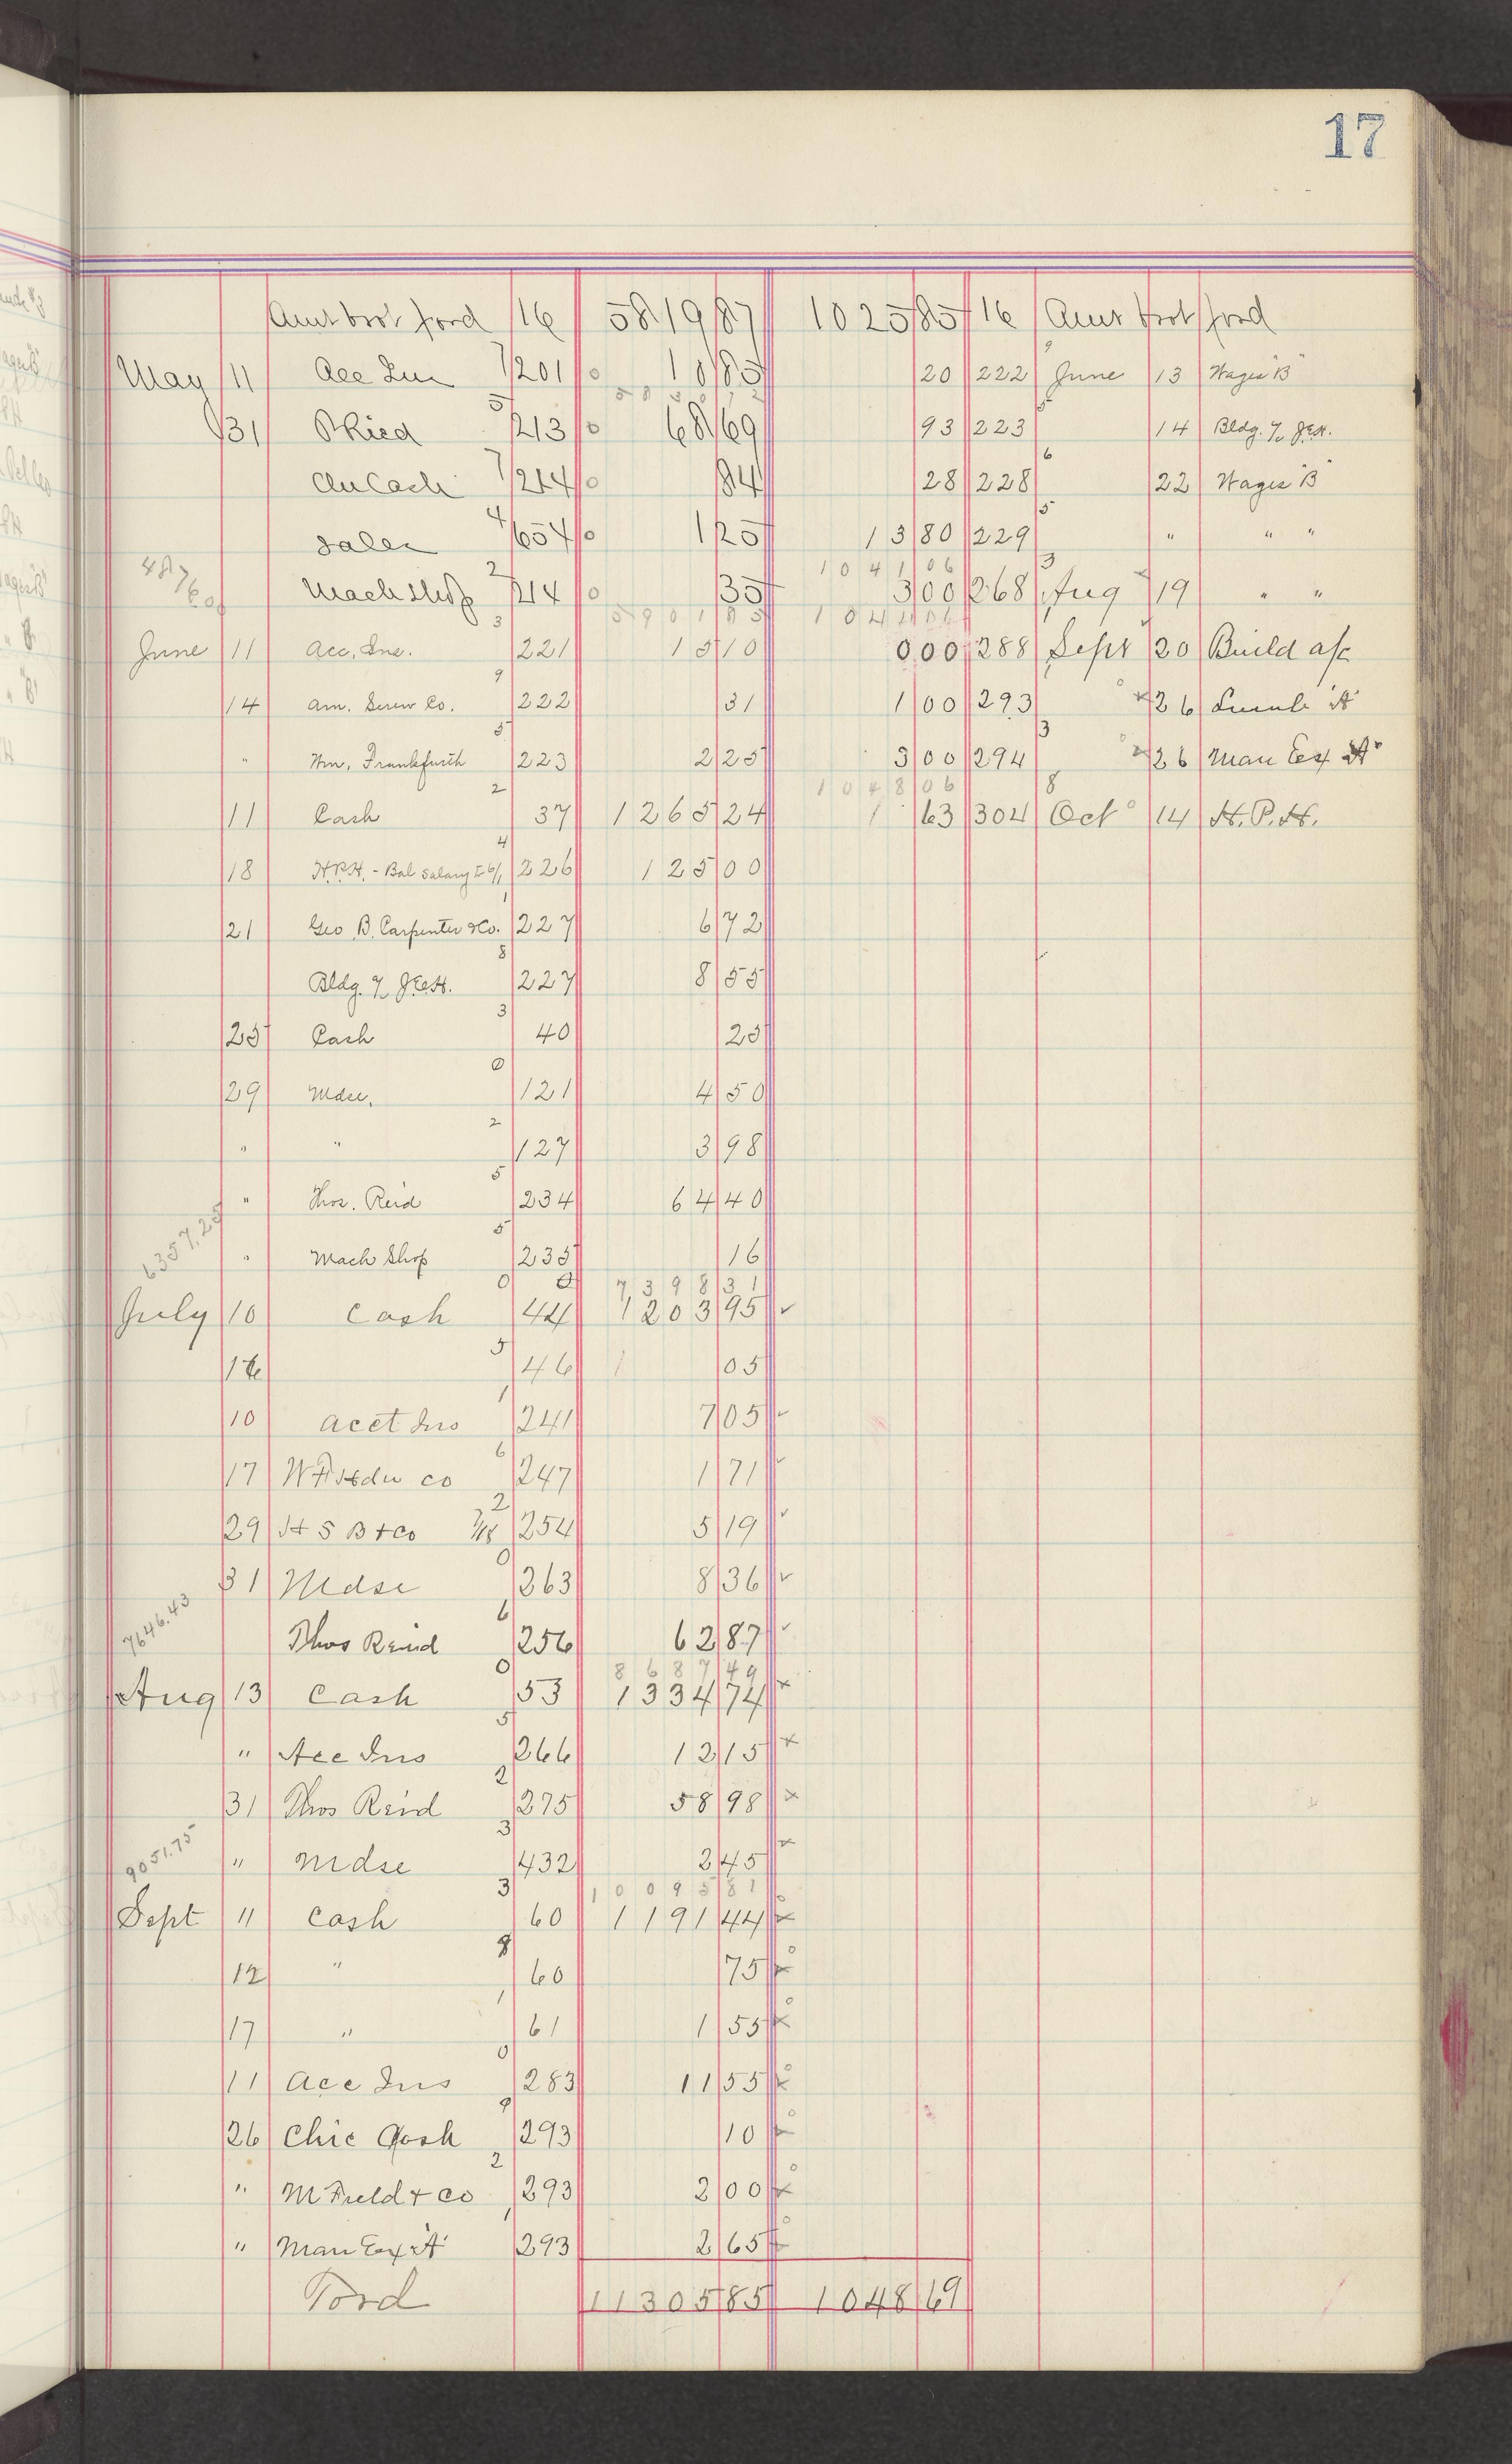 17
Amt brot ford 16 5819 87 1025 85 16 Amt brot ford
May 11 Acc Ins 7 201 0 10 85 20 222 9 June 13 Wages "B"
5830 72
31 5 213 0 68 69 93 223 5 14 Bldg. % J.E.H.
Chi Cash 7 214 0 84 28 228 6 22 Wages "B"
Sales 4 654 0 1 25 13 80 229 5 " " "
1041 06
Mach Shop 2 214 0 35 3 00 268 3 Aug 19 " "
487
5901 85 1044 06
June 11 Acc, Ins. 3 221 15 10 0 00 288 Sept 20 Build a/c
14 Am. Screw Co. 9 222 31 1 00 293 26 Lumb "A"
" Wm. Frankfurth 5 223 2 25 3 00 294 3 26 Man Ex "A"
1048 06
11 Cash 2 37 1265 24 63 304 8 Oct 14 H.P.H.
18 H.P.H. - Bal salary to 6/1 4 226 125 00
21 Geo. B. Carpenter & Co. 1 227 6 72
Bldg. % J.E.H. 8 227 8 55
25 Cash 3 40 25
29 Mdse. 0 121 4 50
" " 2 127 3 98
" Thos. Reid 5 234 64 40
" Mach Shop 5 235 16
6357.25
7398 31
July 10 Cash 0 44 1203 95 ✓
16 5 46 05
10 Acct Ins 1 241 7 05 ✓
17 W F Hdw Co 6 247 1 71 ✓
29 H S B + Co 7/18 2 254 5 19 ✓
31 Mdse 0 263 8 36 ✓
7646.43
Thos Reid 6 256 62 87 ✓
8687 49
Aug 13 Cash 0 53 1334 74 x
" Acc Ins 5 266 12 15 x
31 Thos Reid 2 275 58 98 x
9051.75
" Mdse 3 432 2 45 x
10095 81
Sept 11 Cash 3 60 1191 44 x
12 " 8 60 75 x
17 " 1 61 1 55 x
11 Acc Ins 0 283 11 55 x
26 Chic Cash 9 293 10 x
" M Field + Co 2 293 2 00 x
" Man Ex "A" 1 293 2 65 x
Ford 11305 85 1048 69